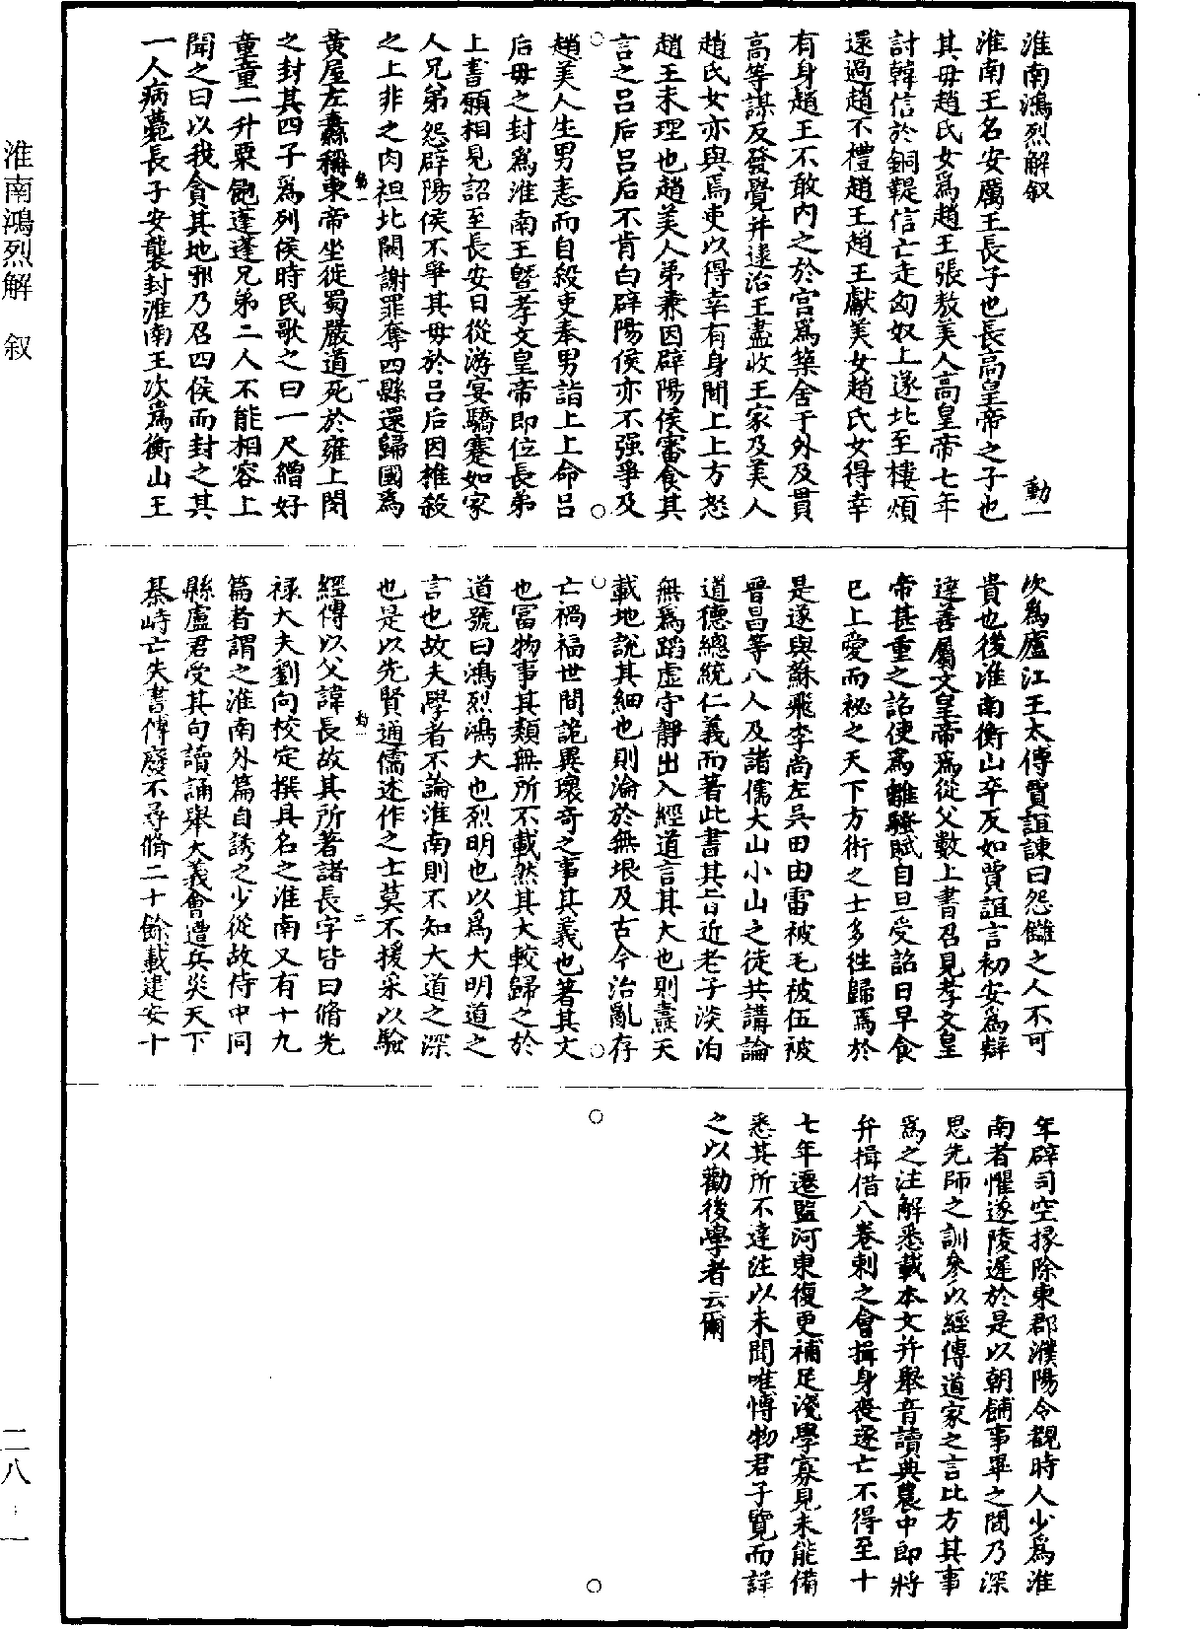 淮南鴻烈解叙　動一
淮南王名安厲王長子也長高皇帝之子也
其毋趙氏女爲趙王張敖美人高皇帝七年
討韓信於銅鞮信亡走匈奴上遂北至樓煩
還過趙不禮趙王趙王獻美女趙氏女得幸
有身趙王不敢内之於宫爲築舍于外及貫
高等謀反發覺并逮治王盡收王家及美人
趙氏女亦與焉吏以得幸有身聞上上方怒
趙王未理也趙美人弟兼因辟陽侯審食其
言之吕后吕后不肯白辟陽侯亦不强爭及
趙美人生男恚而自殺吏奉男詣上上命吕
后毋之封爲淮南王曁孝文皇帝即位長弟
上書願相見詔至長安日從游宴驕蹇如家
人兄弟怨辟陽侯不爭其毋於吕后因椎殺
之上非之肉袒北闕謝罪奪四縣還歸國爲
黄屋左纛稱東帝坐徙蜀嚴道死於雍上閔
之封其四子爲列侯時民歌之曰一尺繒好
童童一升粟飽蓬蓬兄弟二人不能相容上
聞之曰以我貪其地邪乃召四侯而封之其
一人病薨長子安襲封淮南王次爲衡山王
次爲廬江王太傅賈誼諫曰怨讎之人不可
貴也後淮南衡山卒反如賈誼言初安爲辯
達善屬文皇帝爲從父數上書召見孝文皇
帝甚重之詔使爲離騷賦自旦受詔日早食
已上愛而祕之天下方術之士多徃歸焉於
是遂與蘇飛李尚左吳田由雷被毛被伍被
晉昌等八人及諸儒大山小山之徒共講論
道德總統仁義而著此書其旨近老子淡泊
無爲蹈虚守靜出入經道言其大也則燾天
載地說其細也則淪於無垠及古今治亂存
亡禍福世間詭異瓌奇之事其義也著其文
也富物事其類無所不載然其大較歸之於
道號曰鴻烈鴻大也烈明也以爲大明道之
言也故夫學者不論淮南則不知大道之深
也是以先賢通儒述作之士莫不援采以驗
經傳以父諱長故其所著諸長字皆曰脩光
禄大夫劉向校定撰具名之淮南又有十九
篇者謂之淮南外篇自誘之少從故侍中同
縣盧君受其句讀誦舉大義會遭兵災天下
棊峙亡失書傳廢不尋脩二十餘載建安十
年辟司空掾除東郡濮陽令覩時人少爲淮
南者懼遂陵遲於是以朝餔事畢之間乃深
思先師之訓參以經傳道家之言比方其事
爲之注解悉載本文并舉音讀典農中郎將
弁揖借八卷刺之會揖身喪遂亡不得至十
七年遷監河東復更補足淺學寡見未能備
悉其所不達注以未聞唯博物君子覽而詳
之以勸後學者云爾
動一
一
動一
二
淮南鴻烈解　叙
二八・一